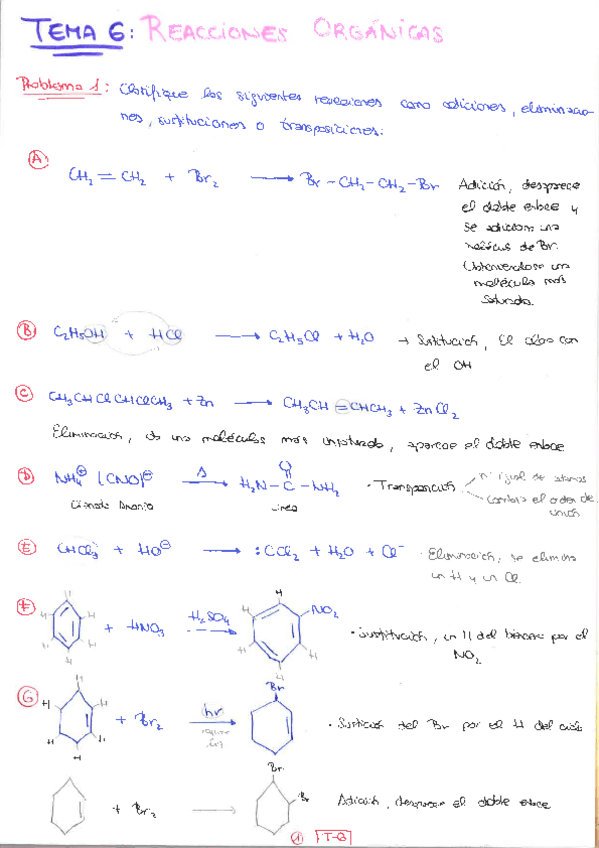 TEMA 6: REACCIONES ORGÁNICAS
Problema 1: Clasifique las siguientes reacciones como adiciones, eliminacio-
nes, sustituciones o transposiciones:
A
CH2=CH2 + Br2 → Br-CH2-CH2-Br Adición, desaparece
el doble enlace y
se adiciona una
de Br.
Obteniendose un
molécula más
saturada.
B C2H5OH + HCl → C2H5Cl + H2O → Sustitución, El con
el OH
C CH3CHClCHClCH3 + Zn → CH3CH=CHCH3 + ZnCl2
Eliminación, es una moléculas más insaturado, aparece el doble enlace
D NH4⊕ (CNO)⊖ Δ → H2N-C-NH2 · Transposición nº igual de atomos
O
Cambia el orden de
unión
Cianato Amonio Urea
E CHCl3 + HO⊖ → :CCl2 + H2O + Cl⁻ · Eliminación, se elimina
un H y un Cl.
F H H H H H + HNO3 H2SO4 → H NO2 H H H · Sustitución, un H del benceno por el
NO2
G H H H H H + Br2 hν → Br · del Br por el H del ciclo
+ Br2 → Br Br Adición, desaparece el doble enlace
1 T-6